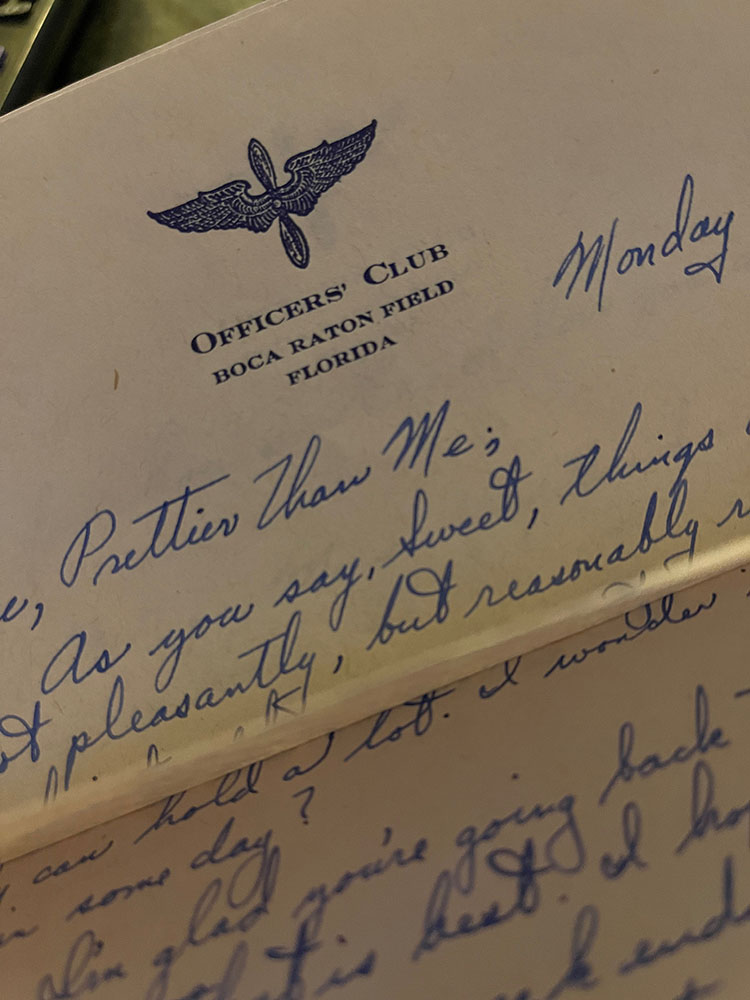 OFFICERS' CLUB
BOCA RATON FIELD
FLORIDA
Monday
Prettier Than Me;
As you say, Sweet, things
pleasantly, but reasonably
can hold a lot. I wonder
some day?
I'm glad you're going back
is best. I